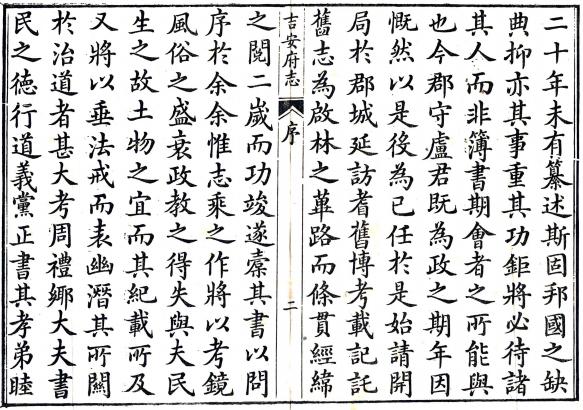 二十年未有纂述斯固邦國之缺
典抑亦其事重其功鉅將必待諸
其人而非簿書期會者之所能與
也今郡守盧君既為政之期年因
慨然以是役為已任於是始請開
局於郡城延訪耆舊博考載記託
舊志為啟林之蓽路而條貫經緯
吉安府志
序
二
之閱二嵗而功竣遂櫜其書以問
序於余余惟志乘之作將以考鏡
風俗之盛衰政教之得失與夫民
生之故土物之宜而其紀載所及
又將以垂法戒而表幽潛其所關
於治道者甚大考周禮鄉大夫書
民之德行道義黨正書其孝弟睦